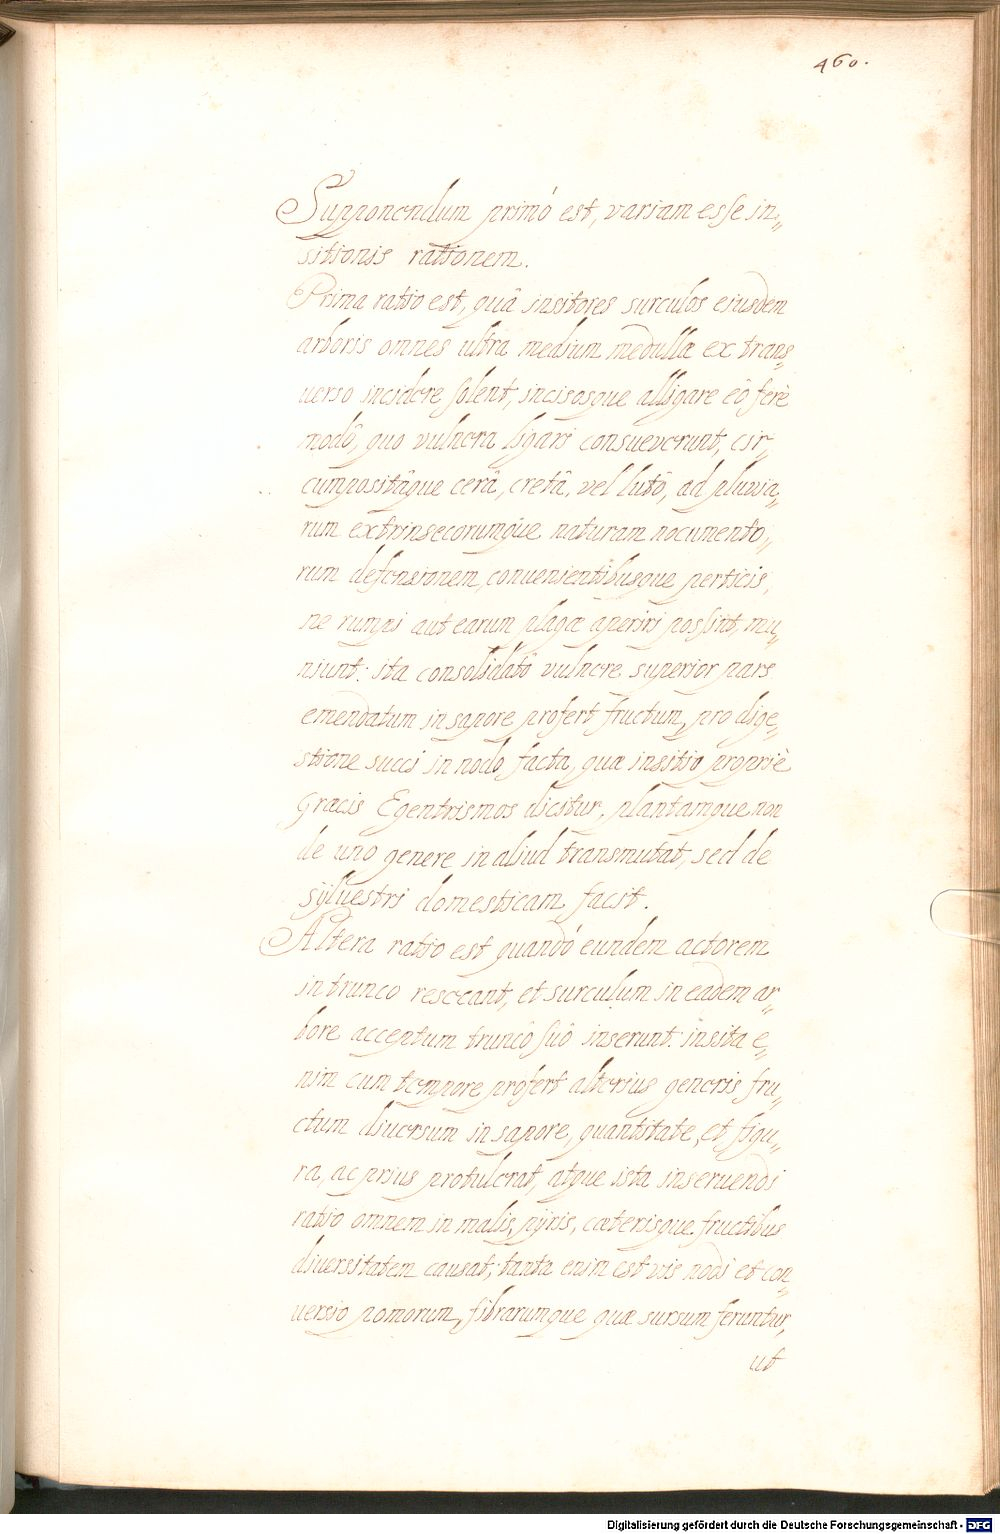 460.
Supponendum primó est, variam esse in„
sitionis rationem.
Prima ratio est, quâ insitores surculos eiusdem
arboris omnes ultra medium medullæ ex trans„
uerso incidere solent, incisosque alligare eô ferè
modô, quo vulnera ligari consueverunt, cir„
cumpositâque cerâ, cretâ, vel lutô, ad pluvia„
rum extrinsecorumque naturam nocumento„
rum defensionem, convenientibusque perticis,
ne rumpi aut earum plagæ aperiri possint, mu„
niunt: ita consolidatô vulnere superior pars
emendatum in sapore profert fructum, pro dige„
stione succi in nodo facta, quæ insitio propriè
Græcis Egentrismos dicitur, plantamque non
de uno genere in aliud transmutat, sed de
syluestri domesticam facit.
Altera ratio est quandó eundem actorem
in trunco resecant, et surculum in eadem ar„
bore acceptum truncô suô inserunt: insita e„
nim cum tempore profert alterius generis fru„
ctum diuersum in sapore, quantitate, et figu„
ra, ac prius protulerat, atque ista inseruendi
ratio omnem in malis, pyris, cæterisque fructibus
diuersitatem causat; tanta enim est vis nodi et con„
uersio pomorum, fibrarumque quæ sursum feruntur,
ut
Digitalisierung gefördert durch die Deutsche Forschungsgemeinschaft - DFG